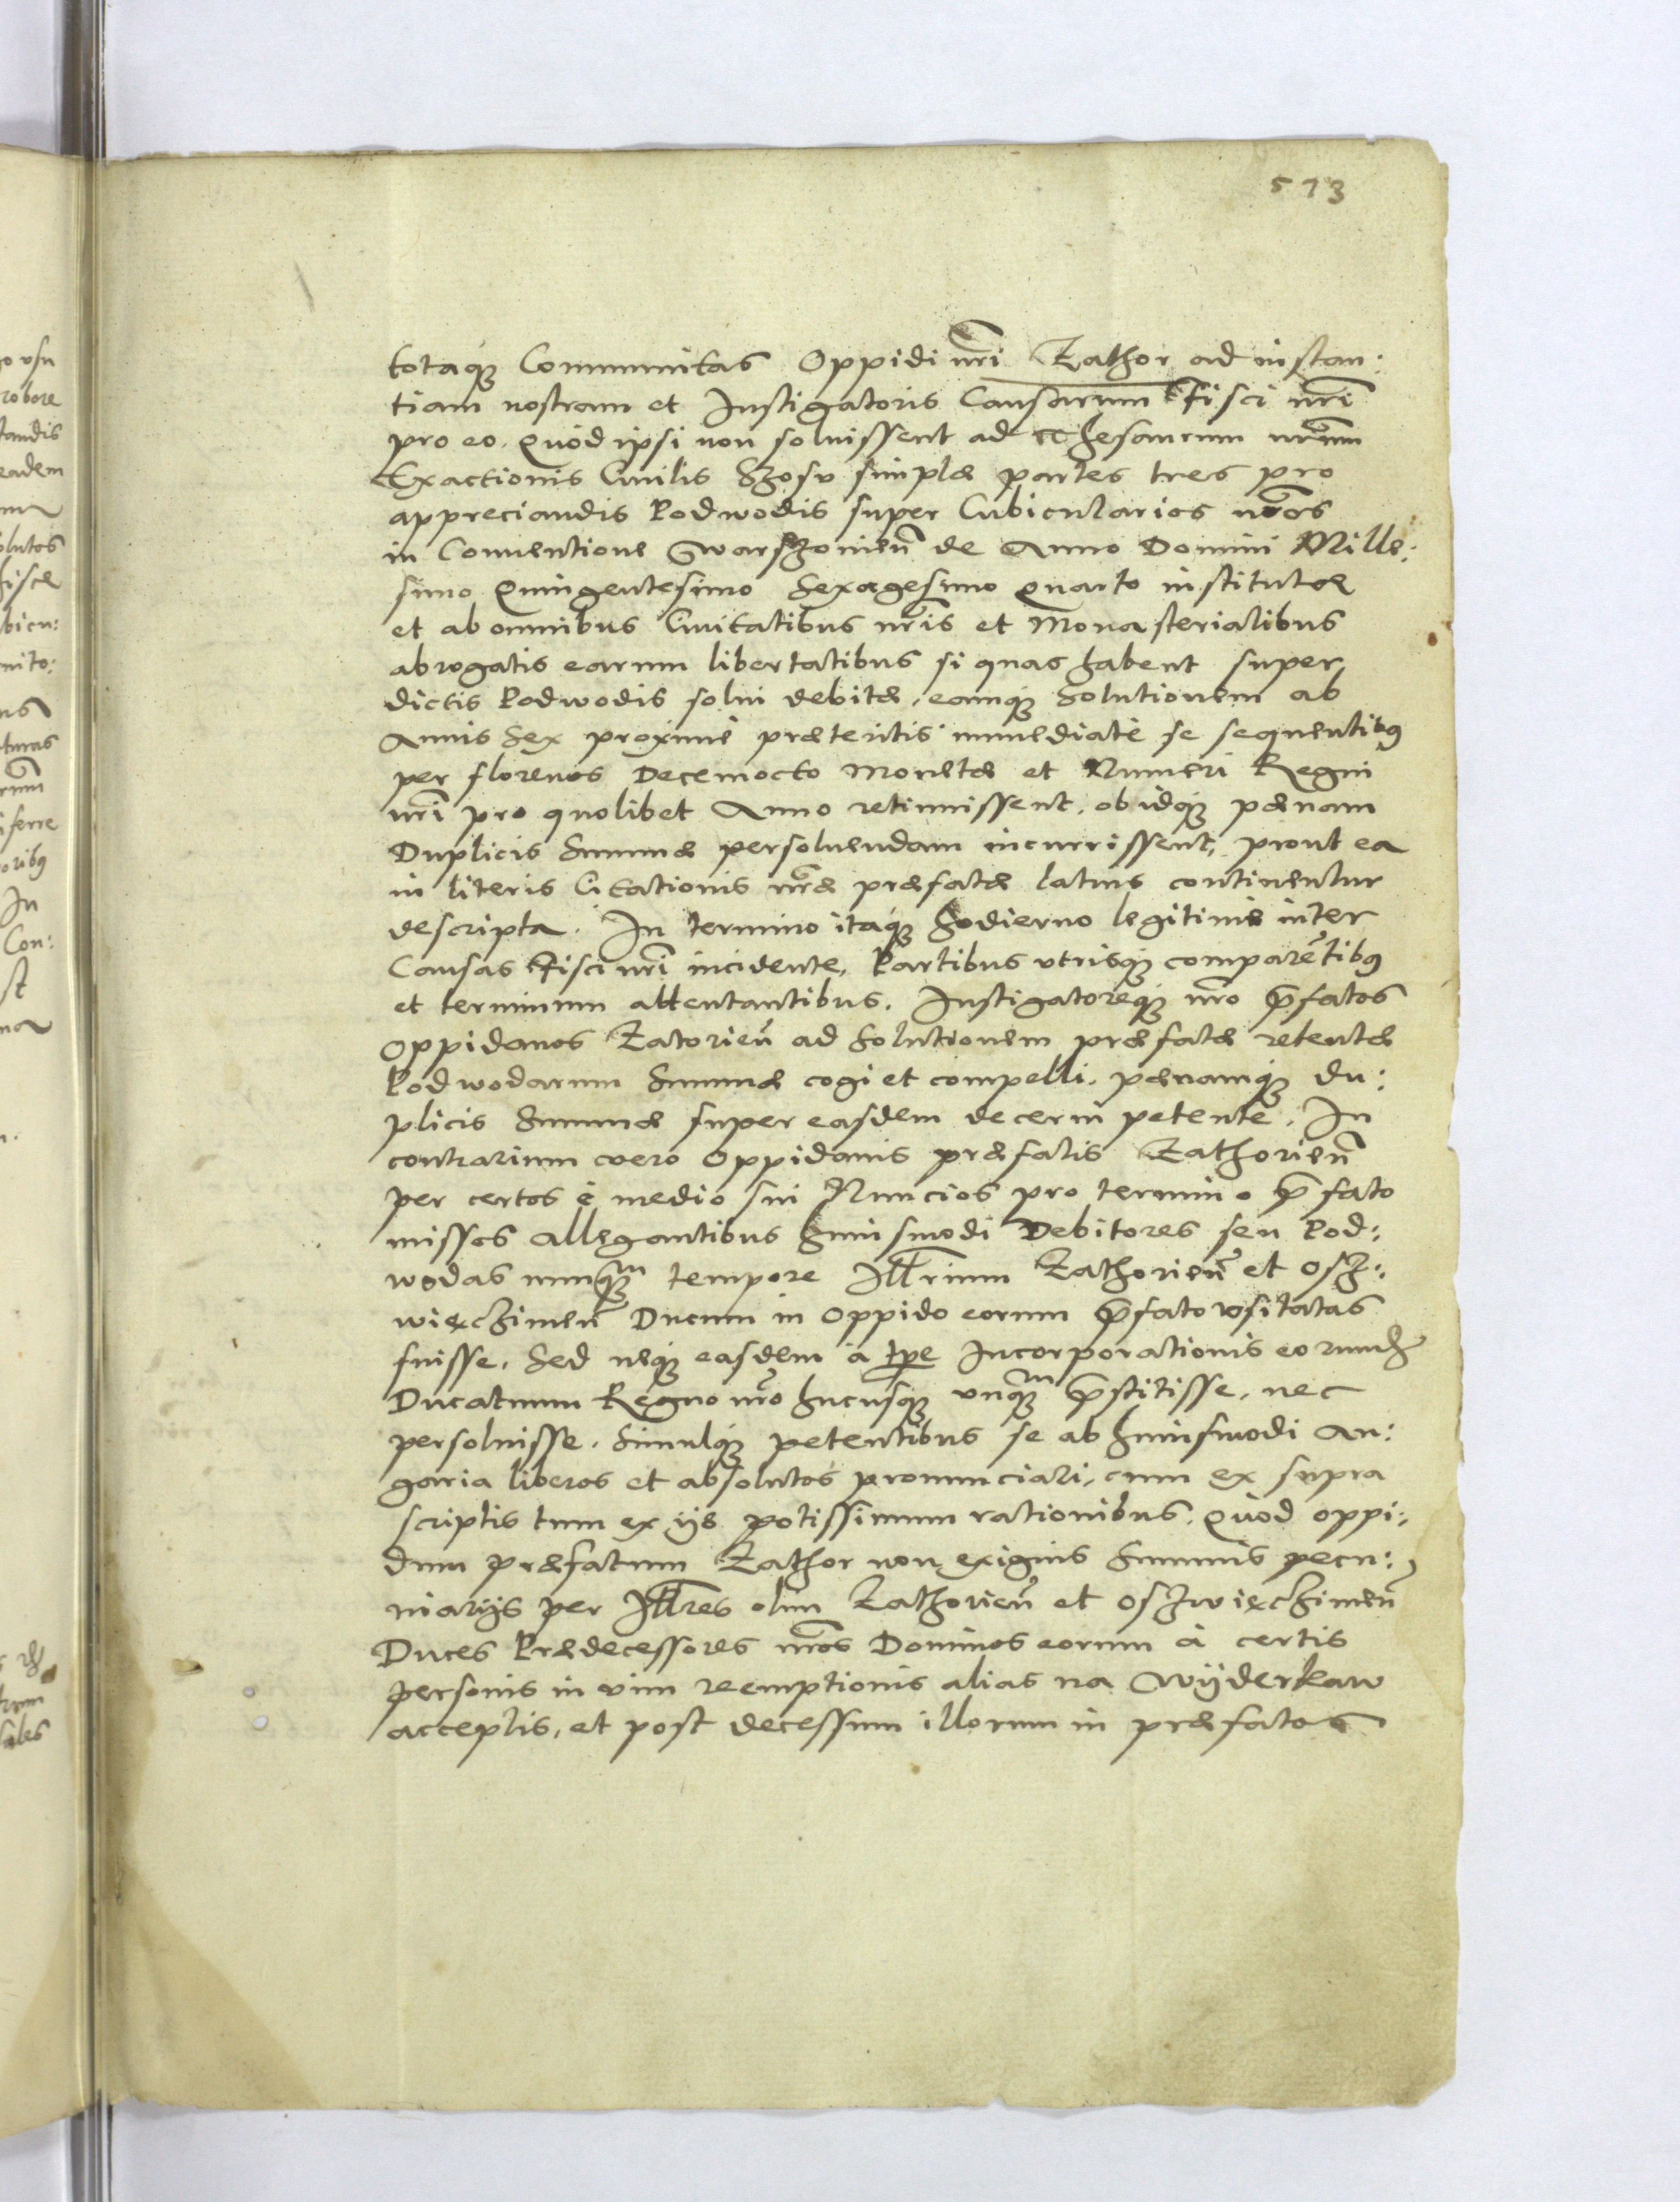 573
totaque Communitas Oppidi nr̃i Zathor ad instan:
tiam nostram et Instigatoris Causarum Fisci nr̃i
pro eo. Quòd ipsi non soluissent ad Thesaurum nr̃um
Exactionis Ciuilis Szosu simplæ partes tres pro
appreciandis Podwodis super Cubicularios nr̃os
in Conuentione Warszouien̄ de Anno Domini Mille:
simo Quingentesimo Sexagesimo Quarto institutæ
et ab omnibus Ciuitatibus nr̃is et Monasterialibus
abrogatis earum libertatibus si quas habent super
dictis Podwodis solui debitæ, eamque Solutionem ab
Annis Sex proximè præteritis immediatè se sequentibus
per florenos Decemocto Monetæ et Numeri Regni
nr̃i pro quolibet Anno retinuissent, ob idque pænam
Duplicis Summæ persoluendam incurrissent, prout ea
in literis Citationis nr̃æ præfatæ latius continentur
descripta. In termino itaque hodierno legitimè inter
Causas Fisci nr̃i incidente, Partibus utrisque comparẽtibus
et terminum attentantibus. Instigatoreque nr̃o p̃fatos
Oppidanos Zatorien̄ ad Solutionem præfatæ retentæ
Podwodarum Summæ cogi et compelli, pænamque du:
plicis Summæ super easdem decerni petente. In
contrarium vero Oppidanis præfatis Zathorien̄
per certos è medio sui Nuncios pro termino p̃fato
missos allegantibus huiusmodi Debitores seu Pod:
wodas nunquam tempore Illr̃ium Zathorien̄ et Osz:
wieczimen̄ Ducum in Oppido eorum p̃fato vsitatas
fuisse, Sed neque easdem à tp̃e Incorporationis eorund̃
Ducatuum Regno nr̃o hucusque vnquam p̃stitisse, nec
persoluisse. Simulque petentibus se ab huiusmodi An:
garia liberos et absolutos pronunciari, cum ex supra
scriptis tum ex ijs potissimum rationibus, Quòd oppi:
dum præfatum Zathor non exiguis Summis pecu:
niarijs per Illr̃es olim Zathorien̄ et Oszwieczimen̄
Duces Prædecessores nr̃os Dominos eorum à certis
personis in vim reemptionis alias na Wÿderkaw
acceptis, et post decessum illorum in præfatos